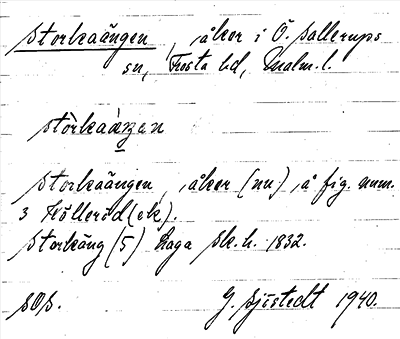 Storkaängen, åker i Ö. Sallerups
sn, Frosta hd, Malm. l.
stòrkaáŋen
Storkaängen, åker (nu) å fig. num.
3 Kölleröd (ek).
Storkäng (5) Laga sk. h. 1832.
SOS. G. Sjöstedt 1940.